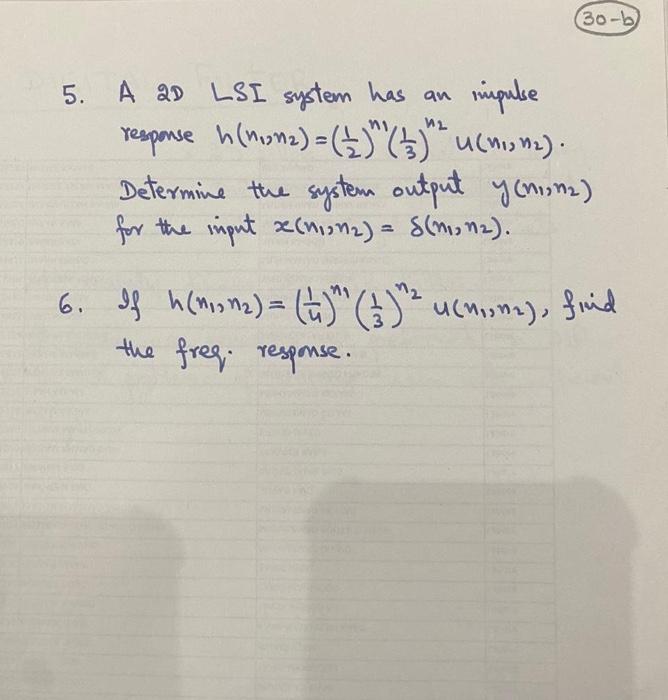 30-b
5. A 2D LSI system has an impulse
response h(n1,n2) = (1/2)^n1 (1/3)^n2 u(n1,n2).
Determine the system output y(n1,n2)
for the input x(n1,n2) = δ(n1,n2).
6. If h(n1,n2) = (1/4)^n1 (1/3)^n2 u(n1,n2), find
the freq. response.